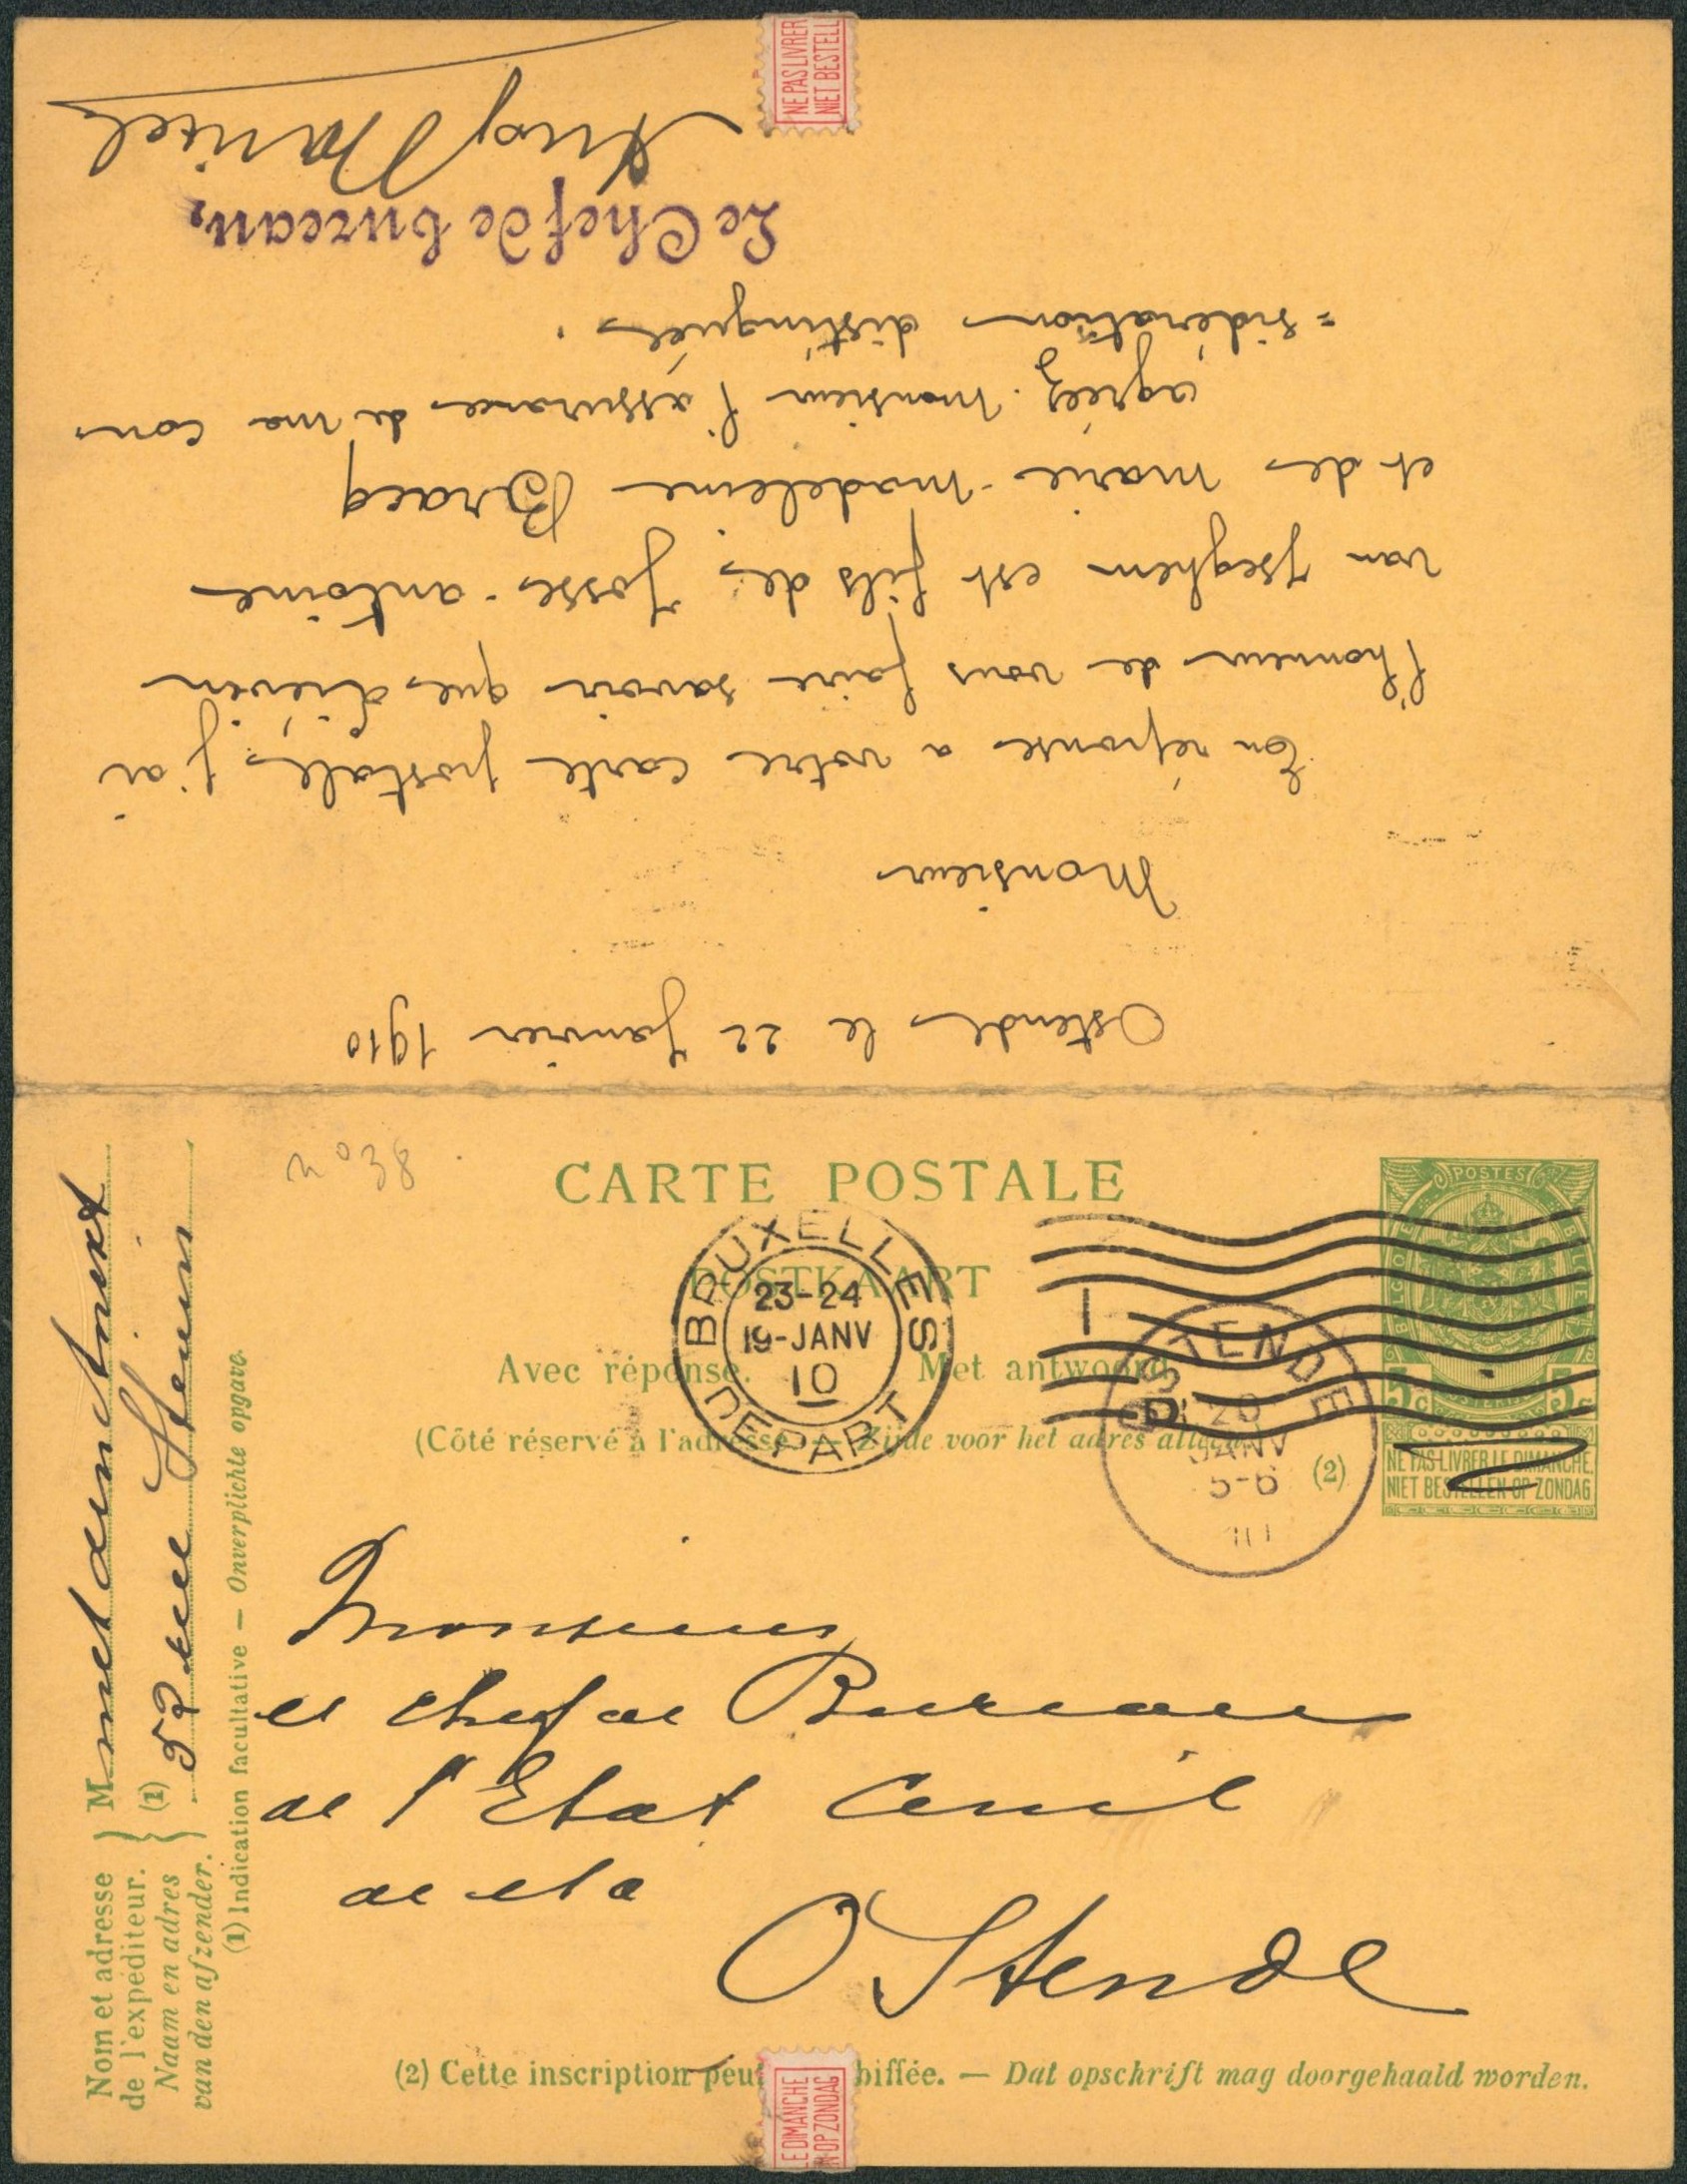 NE PAS LIVRER
NIET BESTELL
Ostende le 22 Janvier 1910
Monsieur
En réponse a votre carte postale, j'ai
l'honneur de vous faire savoir que Liévin
van Iseghem est fils de Josse-antoine
et de marie-madeleine Bracq
agréez. monsieur l'assurance de ma con
=sidération distinguée.
Le Chef de bureau,
n° 38
CARTE POSTALE
POSTKAART
Avec réponse. Met antwoord
(Côté réservé à l'adresse. — Zijde voor het adres alleen
(2)
BRUXELLES
23-24
19-JANV
10
DEPART
OSTENDE
20
JANV
5-6
10
POSTES
5c 5c
NE PAS LIVRER LE DIMANCHE.
NIET BESTELLEN OP ZONDAG
Monsieur
le chef de Bureau
de l'Etat Civil
de et à
OStende
Nom et adresse
de l'expéditeur.
Naam en adres
van den afzender.
M
(1)
rue
(1) Indication facultative — Onverplichte opgave.
(2) Cette inscription peut biffée. — Dat opschrift mag doorgehaald worden.
LE DIMANCHE
N OP ZONDAG